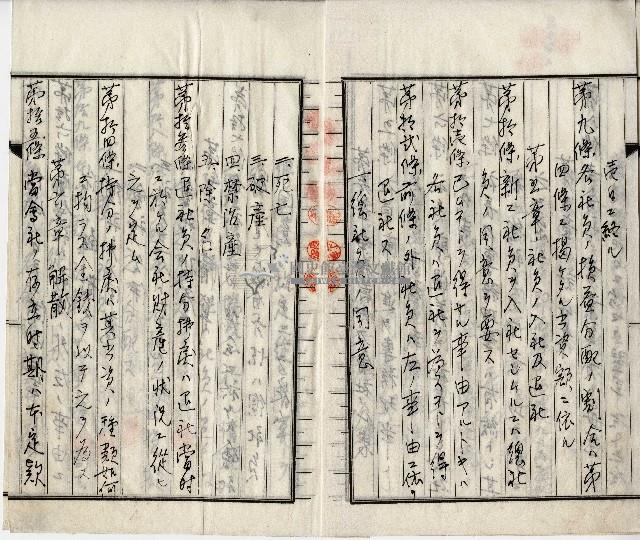 壱日ニ終ル
第九條各社員ノ損益分配ノ割合ハ第
四條ニ揭ケタル出資額ニ依ル
第五章 社員ノ入社及退社
第拾條新ニ社員ヲ入社セシムルニハ總社
員ノ同意ヲ要ス
第拾壱條已ムヲ得サル事由アルトキハ
各社員ハ退社ヲ為スコトヲ得
第拾弐條前條ノ外社員ハ左ノ事由ニ依リ
退社ス
一、總社員ノ同意
二、死亡
三、破産
四、禁治産
五、除名
第拾参條退社員ノ持分拂戻ハ退社當時
ニ於ケル会社財産ノ状況ニ從ヒ
之ヲ定ム
第拾四條持分ノ拂戻ハ其出資ノ種類如何
ニ拘ラス金錢ヲ以テ之ヲ為ス
第六章 解散
第拾五條當會社ノ存立時期ハ本定款